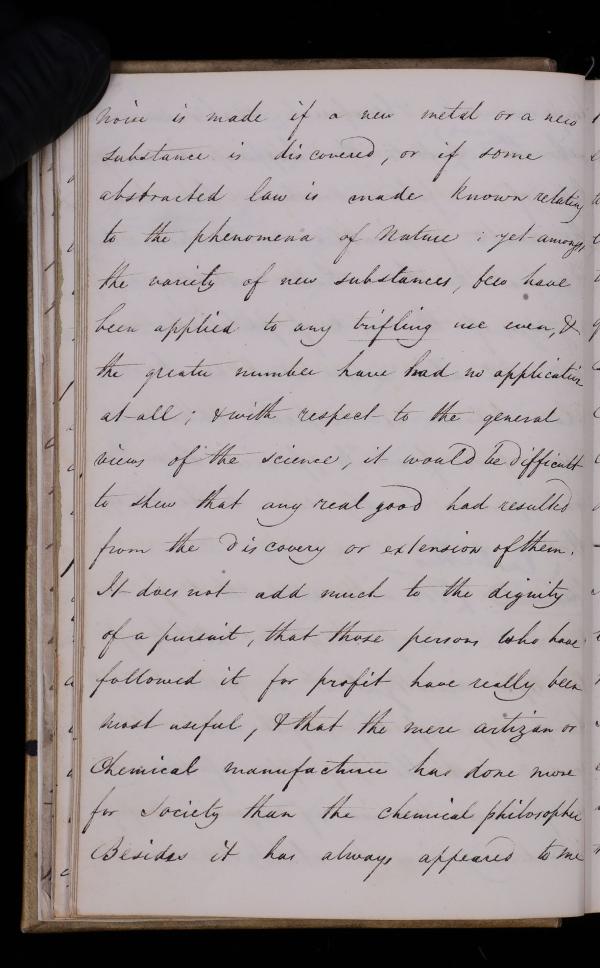 noise is made if a new metal or a new
substance is discovered, or if some
abstracted law is made known relating
to the phenomena of Nature ; yet amongst
the variety of new substances, few have
been applied to any trifling use even, &
the greater number have had no application
at all ; & with respect to the general
views of the science, it would be difficult
to shew that any real good had resulted
from the discovery or extension of them.
It does not add much to the dignity
of a pursuit, that those persons who have
followed it for profit have really been
most useful, & that the mere artizan or
Chemical manufacturer has done more
for Society than the chemical philosopher
Besides it has always appeared to me